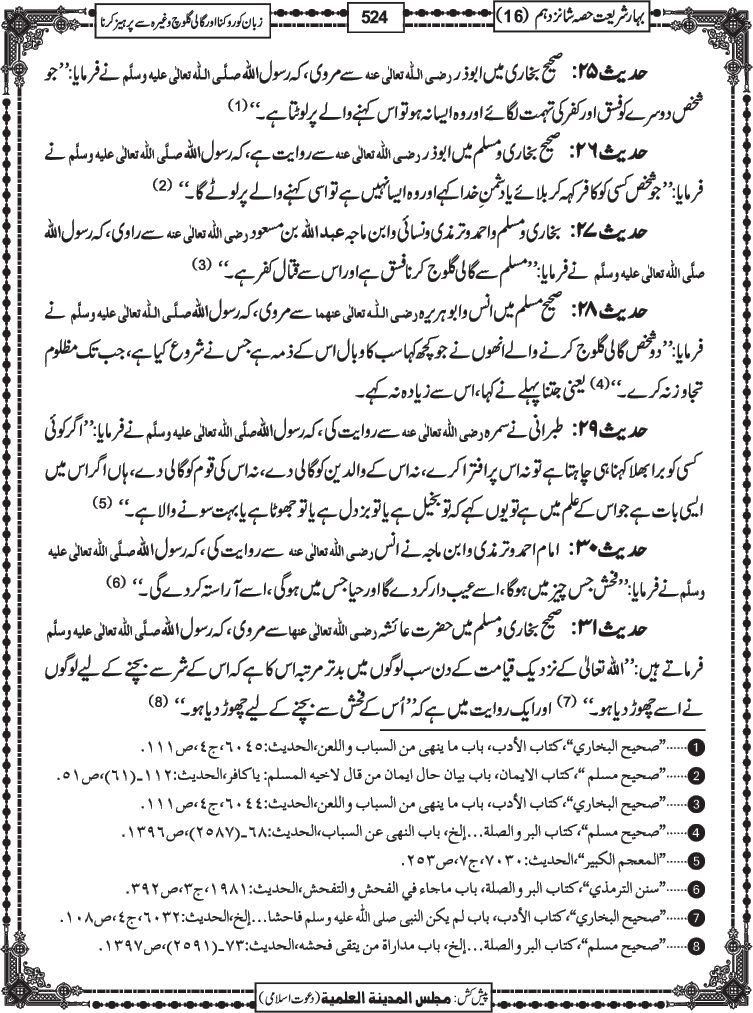 بہارِ شریعت حصہ شانزدہم (16)
524
زبان کو روکنا اور گالی گلوچ وغیرہ سے پرہیز کرنا
حدیث ۲۵: صحیح بخاری میں ابوذر رضی اللہ تعالٰی عنہ سے مروی، کہ رسول اللہ صلَّی اللہ تعالٰی علیہ وسلَّم نے فرمایا: ’’جو
شخص دوسرے کو فسق اور کفر کی تہمت لگائے اور وہ ایسا نہ ہو تو اس کہنے والے پر لوٹتا ہے۔‘‘ (1)
حدیث ۲۶: صحیح بخاری و مسلم میں ابوذر رضی اللہ تعالٰی عنہ سے روایت ہے، کہ رسول اللہ صلَّی اللہ تعالٰی علیہ وسلَّم نے
فرمایا: ’’جو شخص کسی کو کافر کہہ کر بلائے یا دشمنِ خدا کہے اور وہ ایسا نہیں ہے تو اسی کہنے والے پر لوٹے گا۔‘‘ (2)
حدیث ۲۷: بخاری و مسلم و احمد و ترمذی و نسائی و ابن ماجہ عبداللہ بن مسعود رضی اللہ تعالٰی عنہ سے راوی، کہ رسول اللہ
صلَّی اللہ تعالٰی علیہ وسلَّم نے فرمایا: ’’مسلم سے گالی گلوج کرنا فسق ہے اور اس سے قتال کفر ہے۔‘‘ (3)
حدیث ۲۸: صحیح مسلم میں انس و ابوہریرہ رضی اللہ تعالٰی عنہما سے مروی، کہ رسول اللہ صلَّی اللہ تعالٰی علیہ وسلَّم نے
فرمایا: ’’دو شخص گالی گلوج کرنے والے انھوں نے جو کچھ کہا سب کا وبال اس کے ذمہ ہے جس نے شروع کیا ہے، جب تک مظلوم
تجاوز نہ کرے۔‘‘ (4) یعنی جتنا پہلے نے کہا، اس سے زیادہ نہ کہے۔
حدیث ۲۹: طبرانی نے سمرہ رضی اللہ تعالٰی عنہ سے روایت کی، کہ رسول اللہ صلَّی اللہ تعالٰی علیہ وسلَّم نے فرمایا: ’’اگر کوئی
کسی کو برا بھلا کہنا ہی چاہتا ہے تو نہ اس پر افترا کرے، نہ اس کے والدین کو گالی دے، نہ اس کی قوم کو گالی دے، ہاں اگر اس میں
ایسی بات ہے جو اس کے علم میں ہے تو یوں کہے کہ تو بخیل ہے یا تو بزدل ہے یا تو جھوٹا ہے یا بہت سونے والا ہے۔‘‘ (5)
حدیث ۳۰: امام احمد و ترمذی و ابن ماجہ نے انس رضی اللہ تعالٰی عنہ سے روایت کی، کہ رسول اللہ صلَّی اللہ تعالٰی علیہ
وسلَّم نے فرمایا: ’’فحش جس چیز میں ہوگا، اسے عیب دار کردے گا اور حیا جس میں ہوگی، اسے آراستہ کردے گی۔‘‘ (6)
حدیث ۳۱: صحیح بخاری و مسلم میں حضرت عائشہ رضی اللہ تعالٰی عنہا سے مروی، کہ رسول اللہ صلَّی اللہ تعالٰی علیہ وسلَّم
فرماتے ہیں: ’’اللہ تعالٰی کے نزدیک قیامت کے دن سب لوگوں میں بدتر مرتبہ اس کا ہے کہ اس کے شر سے بچنے کے لیے لوگوں
نے اسے چھوڑ دیا ہو۔‘‘ (7) اور ایک روایت میں ہے کہ ’’اُس کے فحش سے بچنے کے لیے چھوڑ دیا ہو۔‘‘ (8)
1 ......"صحيح البخاري"، كتاب الأدب، باب ما ينهى من السباب واللعن، الحديث: ٦٠٤٥، ج٤، ص١١١.
2 ......"صحيح مسلم"، كتاب الايمان، باب بيان حال ايمان من قال لاخيه المسلم: ياكافر، الحديث: ١١٢ـ(٦١)، ص٥١.
3 ......"صحيح البخاري"، كتاب الأدب، باب ما ينهى من السباب واللعن، الحديث: ٦٠٤٤، ج٤، ص١١١.
4 ......"صحيح مسلم"، كتاب البر والصلة...إلخ، باب النهى عن السباب، الحديث: ٦٨ـ(٢٥٨٧)، ص١٣٩٦.
5 ......"المعجم الكبير"، الحديث: ٧٠٣٠، ج٧، ص٢٥٣.
6 ......"سنن الترمذي"، كتاب البر والصلة، باب ماجاء في الفحش والتفحش، الحديث: ١٩٨١، ج٣، ص٣٩٢.
7 ......"صحيح البخاري"، كتاب الأدب، باب لم يكن النبى صلى الله عليه وسلم فاحشا...إلخ، الحديث: ٦٠٣٢، ج٤، ص١٠٨.
8 ......"صحيح مسلم"، كتاب البر والصلة...إلخ، باب مداراة من يتقى فحشه، الحديث: ٧٣ـ(٢٥٩١)، ص١٣٩٧.
پیش کش: مجلس المدینة العلمیة (دعوت اسلامی)